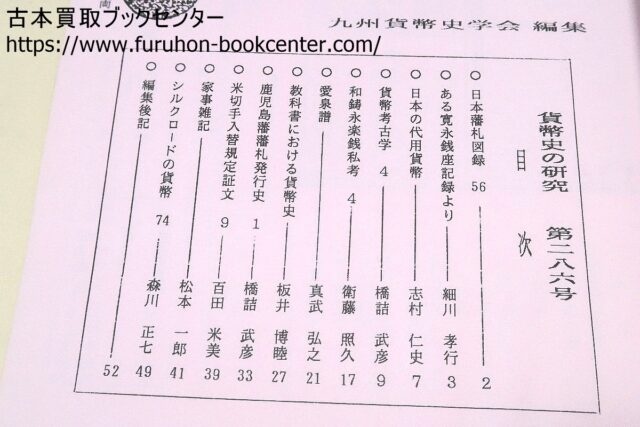 古本買取ブックセンター
https://www.furuhon-bookcenter.com/
九州貨幣史学会 編集
貨幣史の研究 第二八六号
目次
○ 日本藩札図録 56 2
○ ある寛永銭座記録より 細川 孝行 3
○ 日本の代用貨幣 志村 仁史 7
○ 貨幣考古学 4 橋詰 武彦 9
○ 和鋳永楽銭私考 4 衛藤 照久 17
○ 愛泉譜 真武 弘之 21
○ 教科書における貨幣史 板井 博睦 27
○ 鹿児島藩藩札発行史 1 橋詰 武彦 33
○ 米切手入替規定証文 9 百田 米美 39
○ 家事雑記 松本 一郎 41
○ シルクロードの貨幣 74 森川 正七 49
○ 編集後記 52